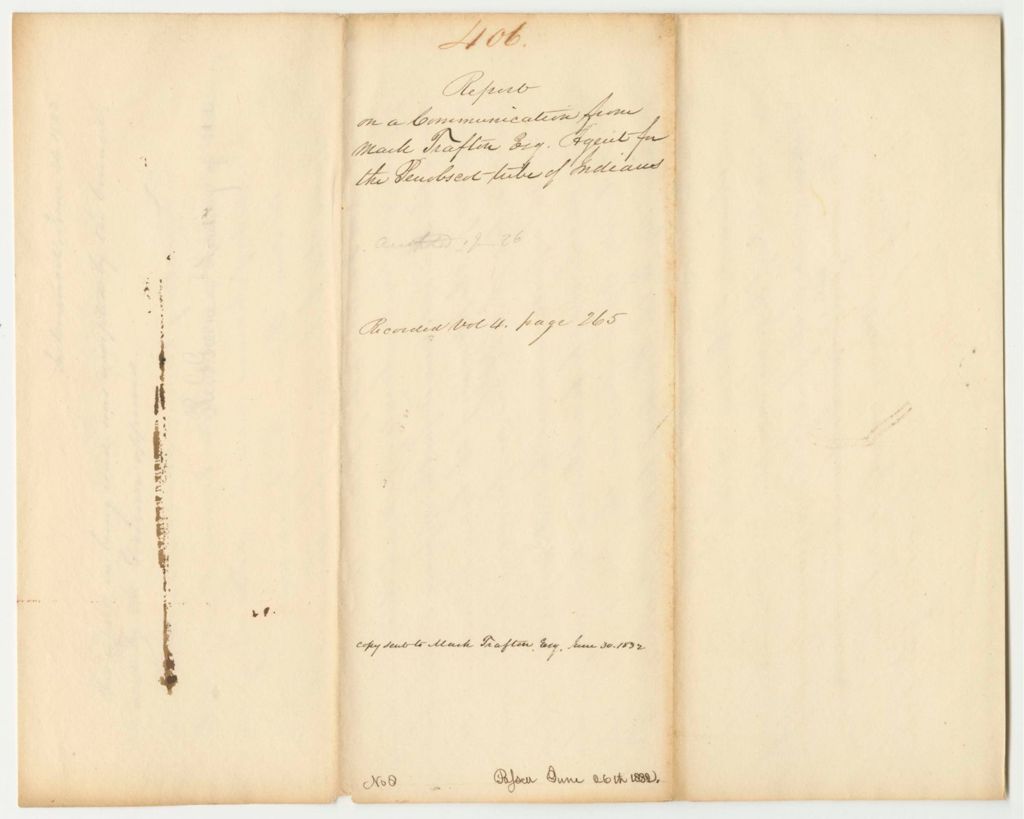 406.
Report
on a Communication from
Mark Trafton Esq. Agent for
the Penobscot tribe of Indians
26
Recorded Vol 4. page 265
copy sent to Mark Trafton, Esq. June 30. 1832
No
June 26th 1832.